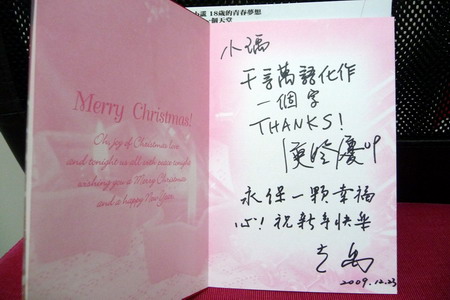 18歲的青春夢想
個天堂
Merry Christmas!
Oh, joy of Christmas love
and tonight us all with peace tonight
wishing you a Merry Christmas
and a happy New Year
小瑀
千言萬語化作
一個字
THANKS!
慶 09
永保一顆幸福
心! 祝新年快樂
2009.12.23